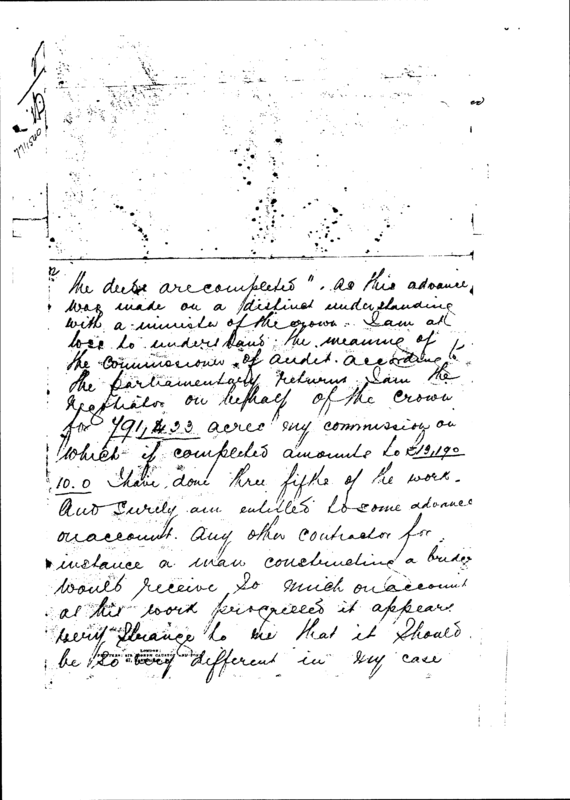 77/1500
the deeds are completed". As this advance
was made on a distinct understanding
with a minister of the crown. I am at
loss to understand the meaning of
the commissioner of audit. according to
the Parliamentary returns I am the
negotiator on behalf of the crown
for acres my commission on
which if completed amounts to £13,190
10.0 I have done three fifths of the work.
And surely am entitled to some advance
on account. Any other contractor for
instance a man constructing a bridge
would receive so much on account
as his work progressed it appears
very strange to me that it should
be so very different in my case
LONDON: